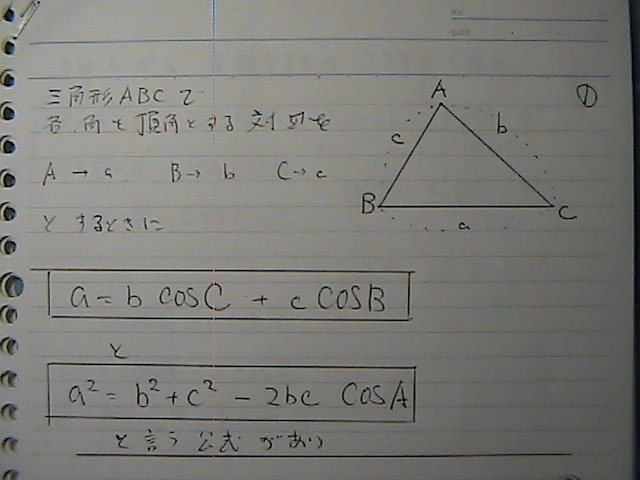 三角形ABCで
各角を頂角とする対辺を
A → a B → b C → c
とするときに
a = b cosC + c cosB
と
a² = b² + c² - 2bc cosA
と言う公式があり
①
A
c
b
B
C
a
No.
DATE